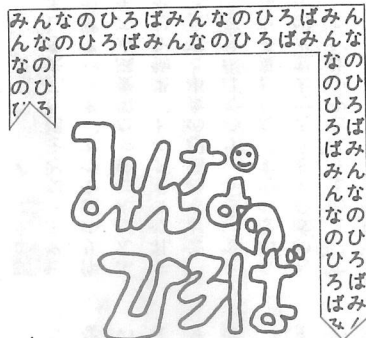 みんなのひろばみんなのひろばみん
んなのひろばみんなのひろばみんな
なのひ
のひろ
みんなの
ひろば
なのひろばみんなのひろばみ
のひろばみんなのひろばみ